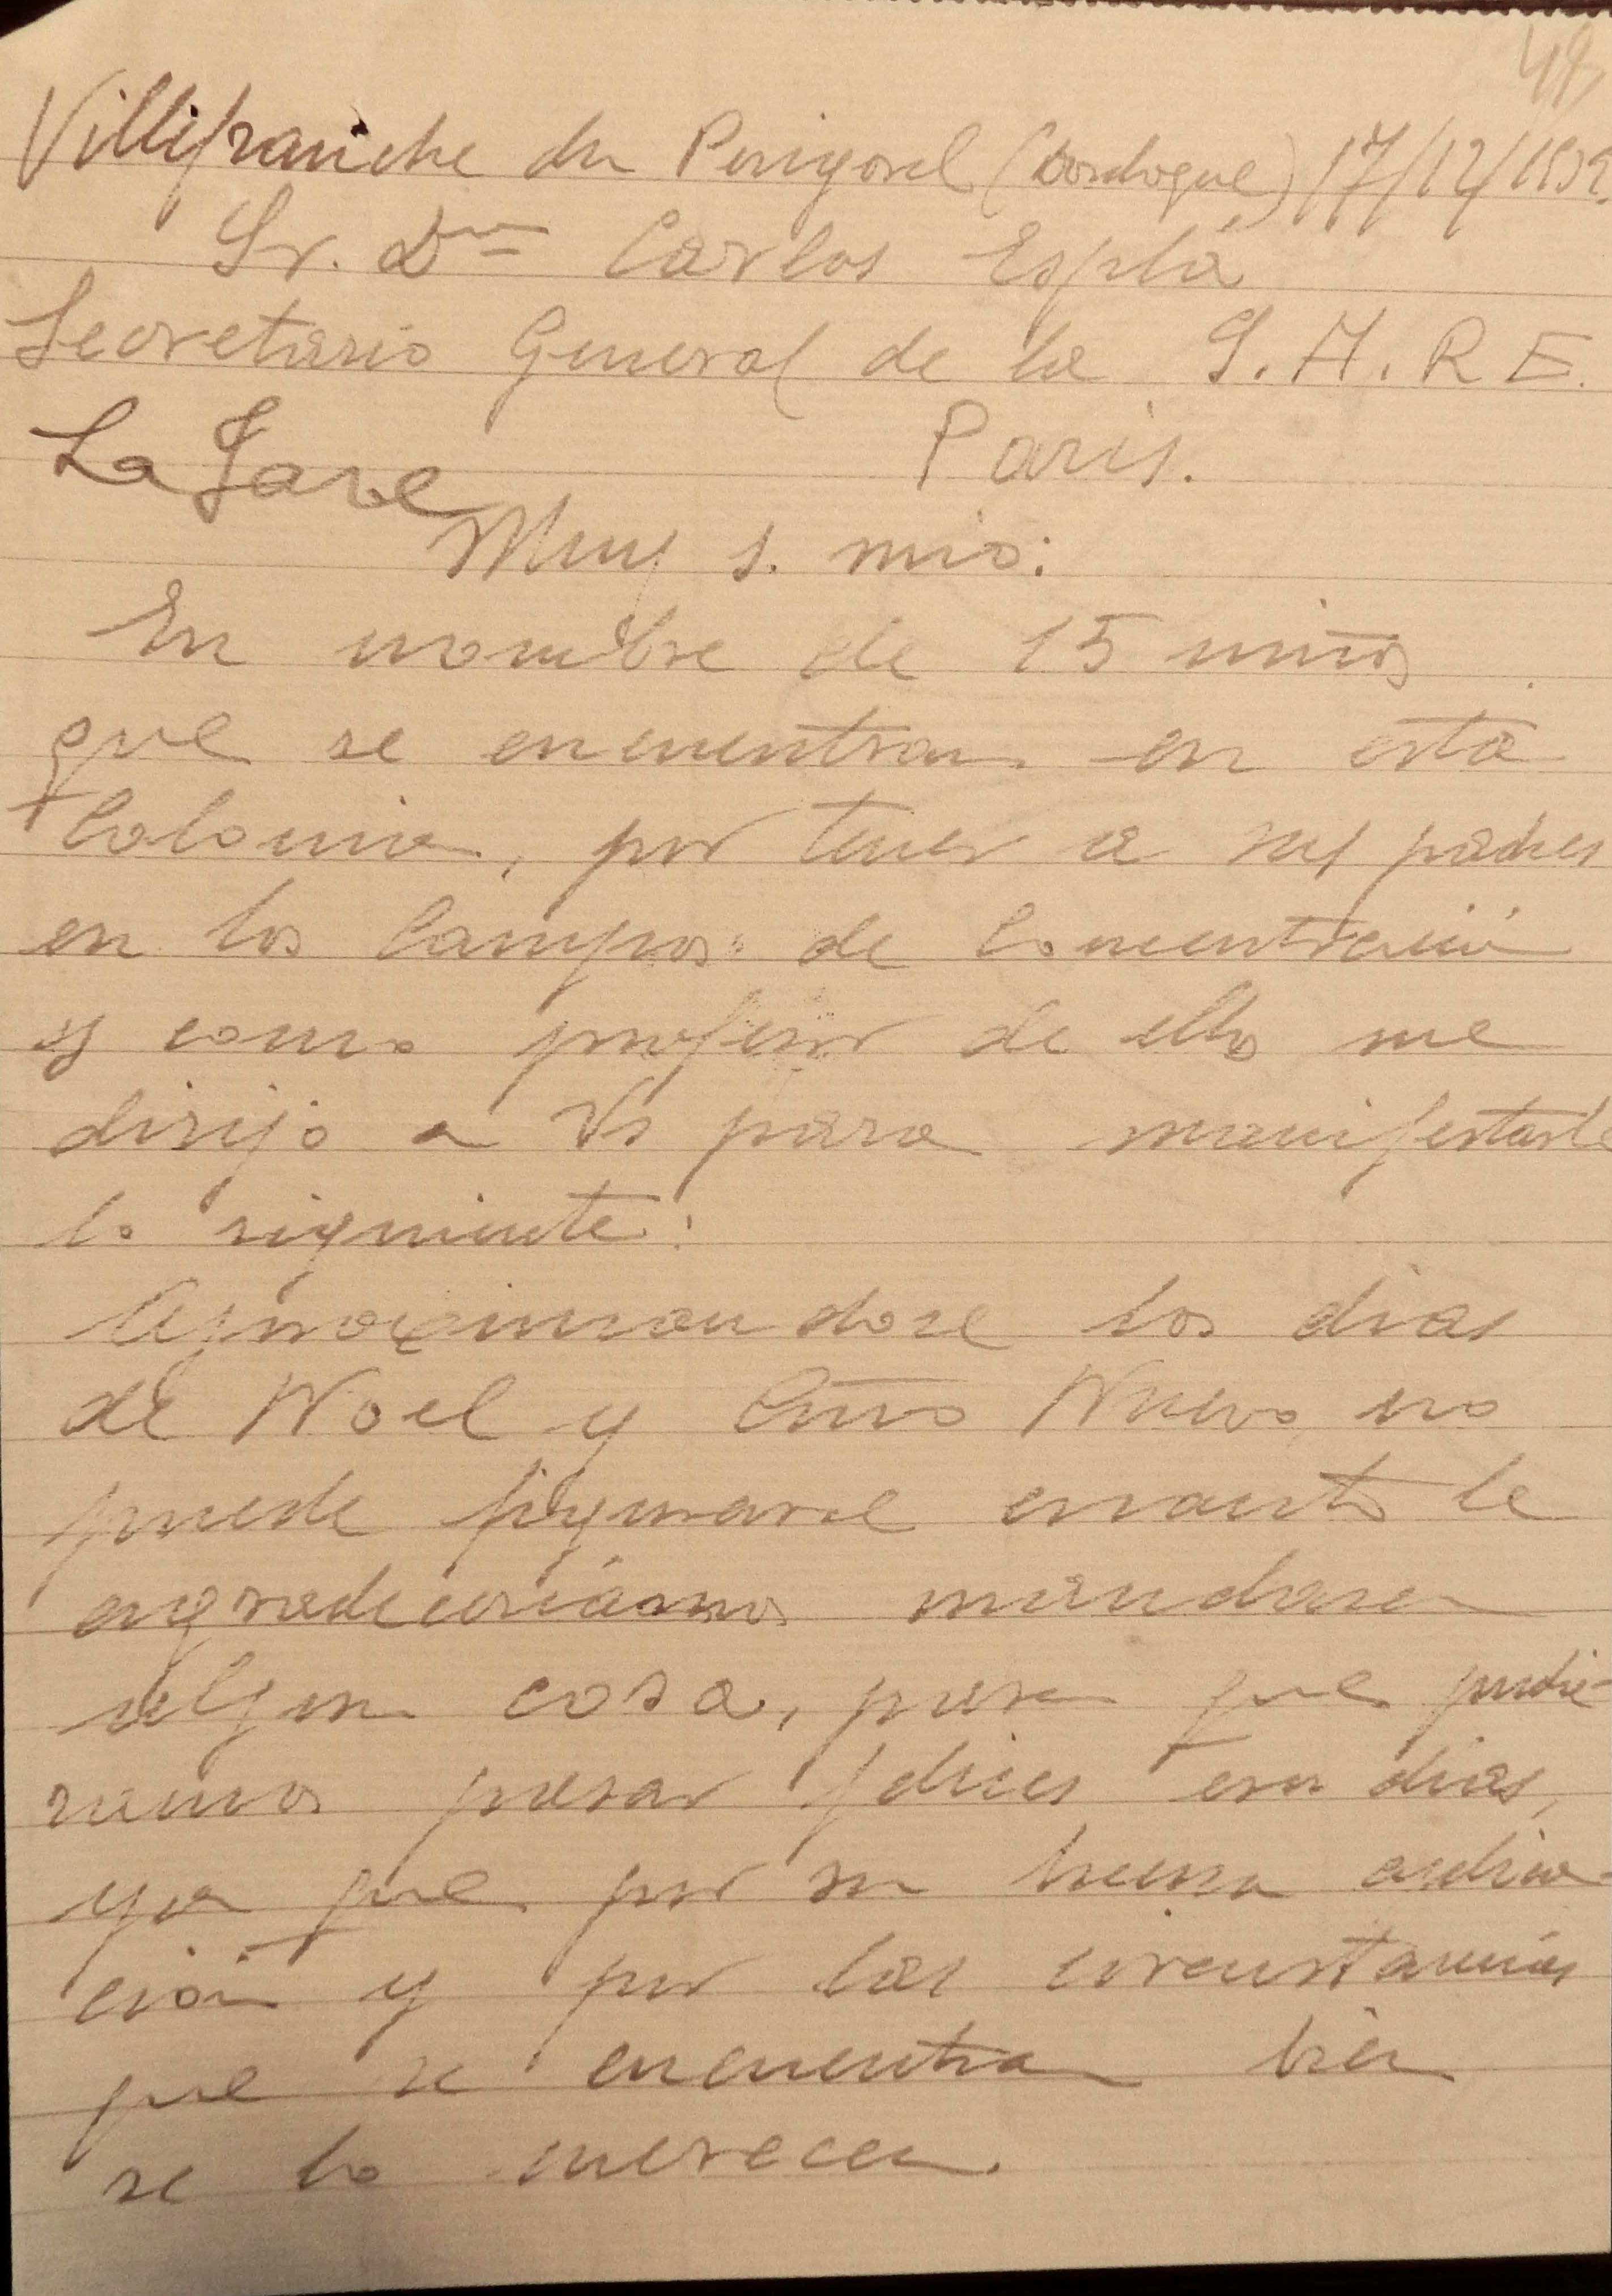 48
Villefranche du Perigord (Dordogne) 17/12/1939.
Sr. Dn Carlos Esplá
Secretario General de la S.A.R.E.
La Gare Paris.
Muy s. mio:
En nombre de 15 niños
que se encuentran en esta
Colonia, por tener a sus padres
en los Campos de Concentración
y como profesor de ellos me
dirijo a Vs para manifestarle
lo siguiente:
Aproximandose los dias
de Noel y Año Nuevo, no
puede figurarse cuanto le
agradeceriámos mandasen
algun cosa, para que pudie-
ramos pasar felices esos dias,
ya que por su buena aplica-
ción y por las circustancias
que se encuentran bien
se lo merecen.